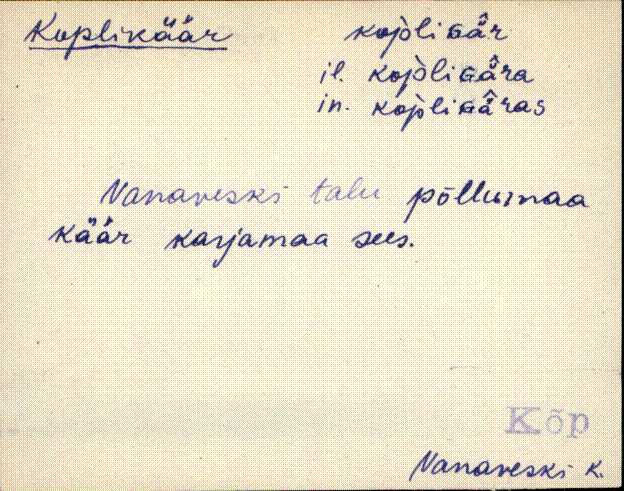 Koplikäär kop̀liɢä̂r
il. kop̀liɢä̂ra
in. kop̀liɢä̂ras
Vanaveski talu põllumaa
käär karjamaa sees.
Kõp
Vanaveski k.